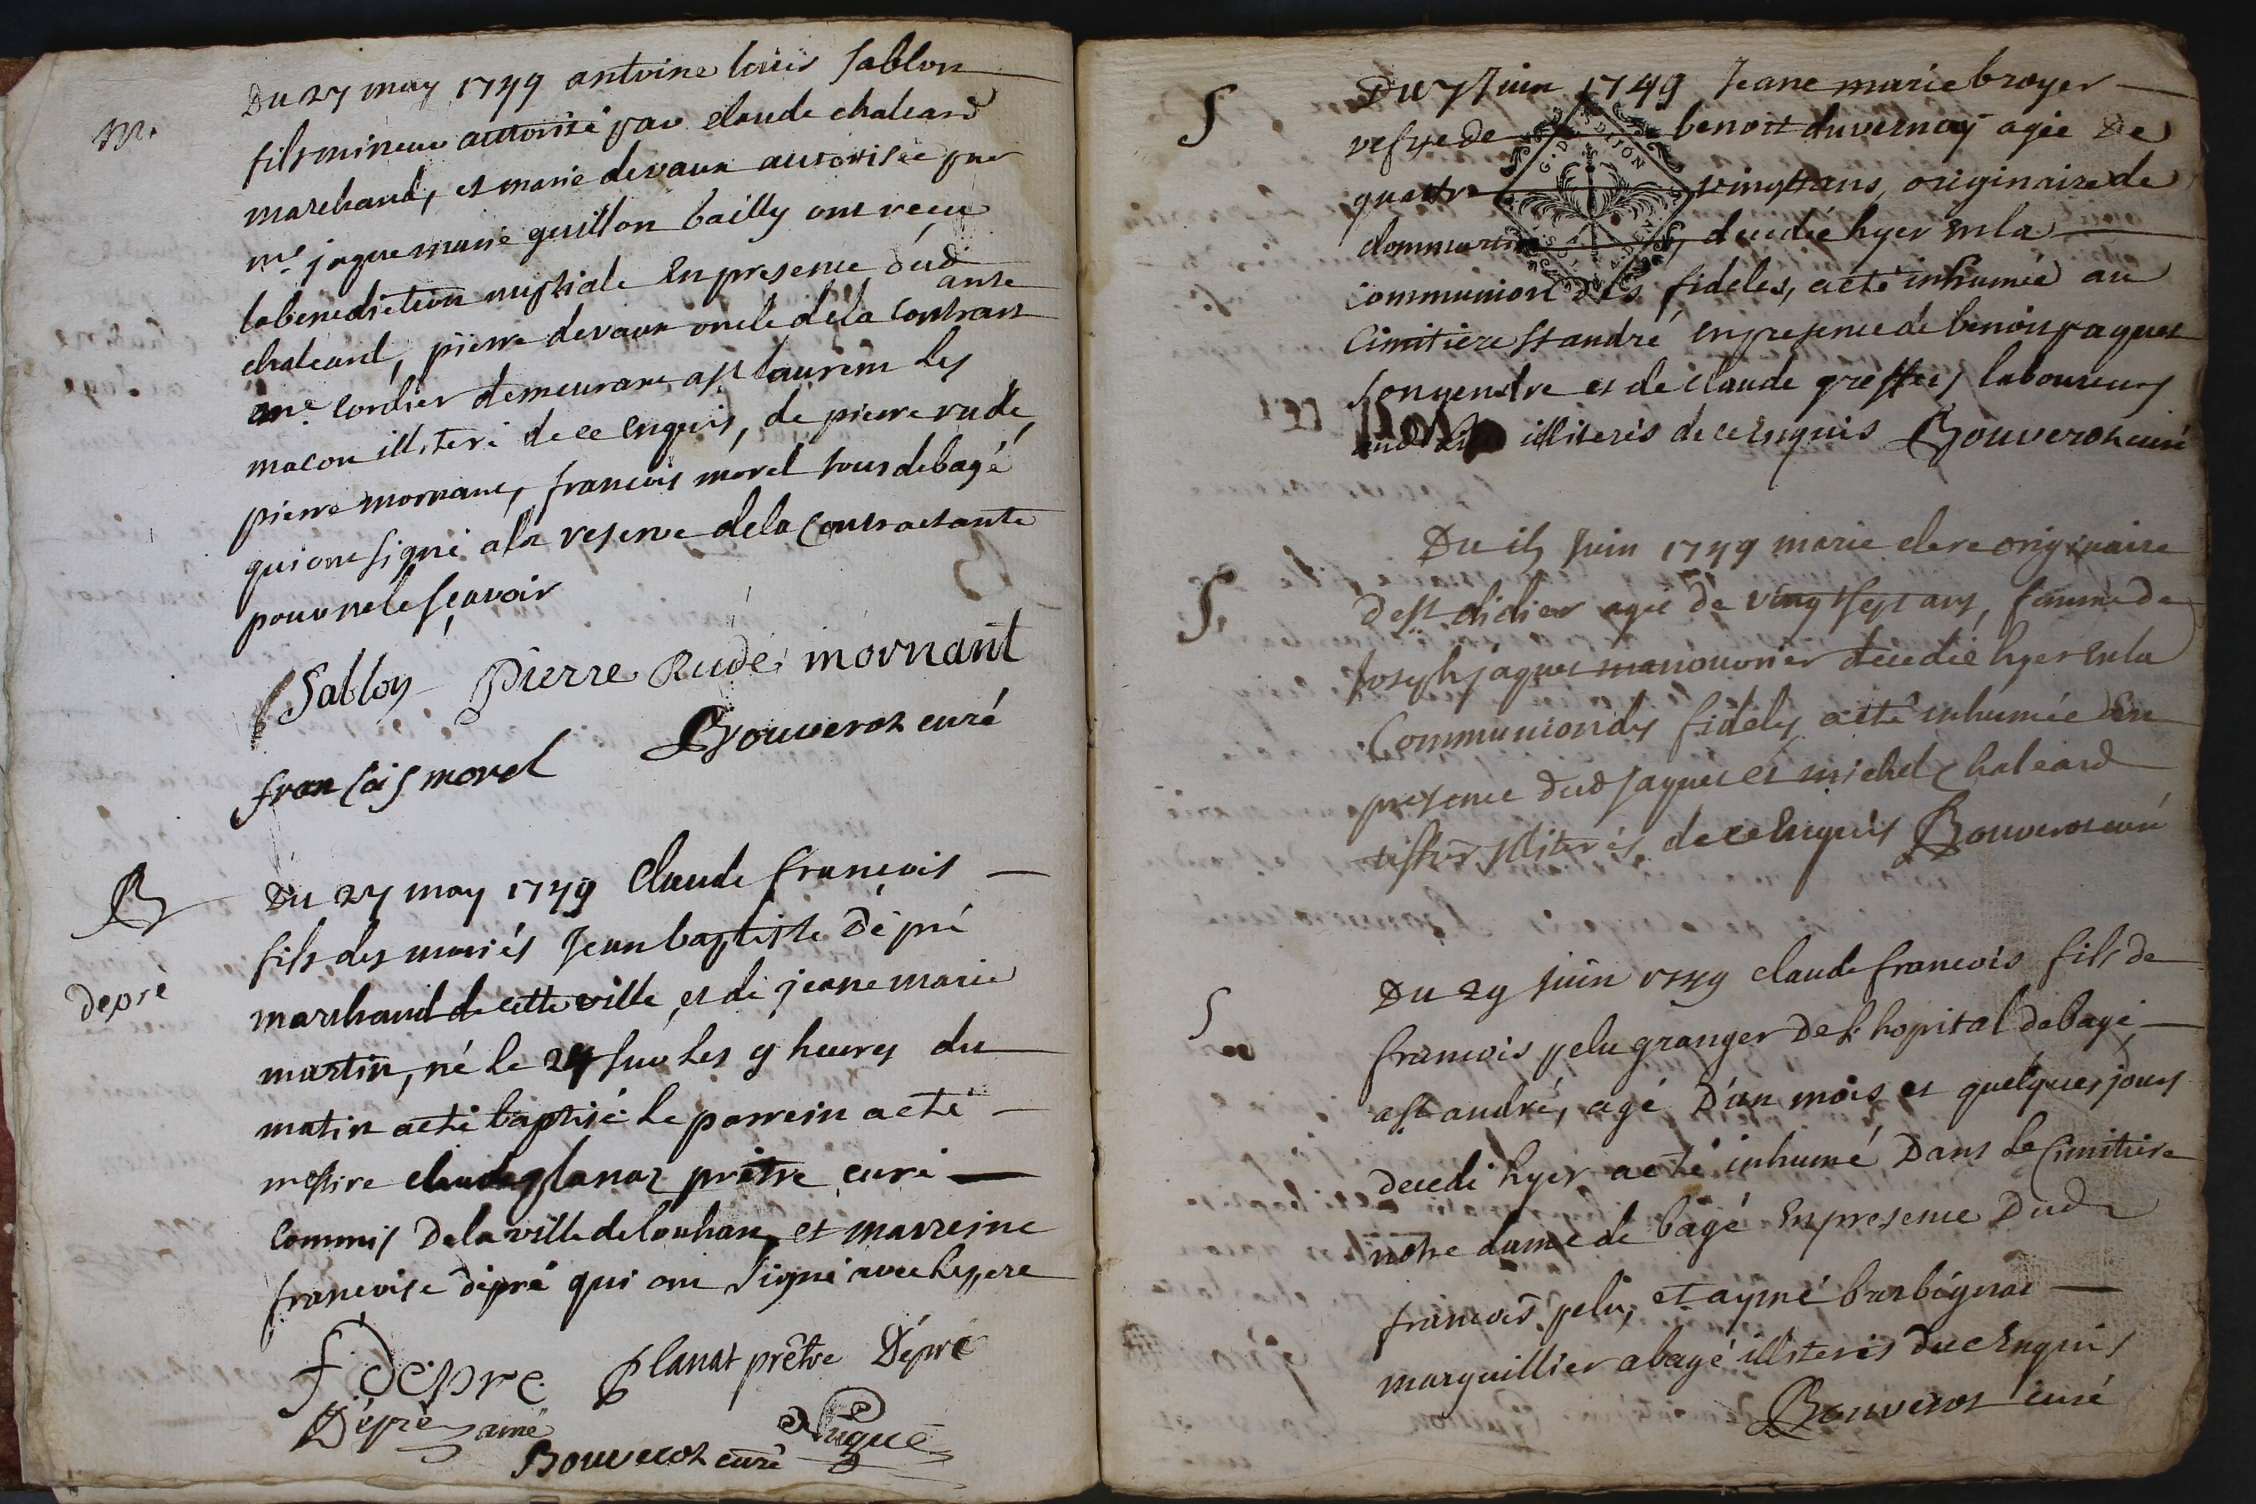 M.
Du 27 may 1749 antoine louis Sablon
fils mineur autorisé par claude chaleard
marchand, et marie devaux autorisée par
me. jaque marie guillon bailly ont reçu
la benediction nuptiale En presence dud
chaleard, pierre devaux oncle de la Contract
ante
me. cordier demeurant a st laurent les
macon illiteré de ce Enquis, de pierre rude,
pierre mornant, francois morel tous de bagé
qui ont signé a la reserve de la Contractante
pour ne le sçavoir
Sablon Pierre Rude mornant
francois morel Bouverot curé
B
depré
Du 27 may 1749 Claude francois
fils des mariés Jean baptiste Dépré
marchand de cette ville, et de jeane marie
martin, né le 27 sur les 9 heures du
matin a eté baptisé. le parrein a eté
messire claude planat prêtre curé
commis De la ville de louhan, et marreine
francoise dépré qui ont signé avec le pere
f depre Planat prêtre Dépré
Dépré ainé
Bouverot curé
S
Du 7 Juin 1749 Jeane marie broyer
vefve de benoit duvernay agée De
quatre vingt ans, originaire de
dommartin, decedée hyer en la
communion des fideles, a eté inhumée au
Cimitiere st andré en presence de benoit paquet
son gendre et de claude greffet laboureurs
illiterés de ce Enquis Bouverot curé
S.
Juin 1749 marie clere originaire
de st didier agée de vingt sept ans, femme de
Joseph jaques manouvrier decedée hyer en la
Communion des fideles, a eté inhumée En
presence dud Jaques et michel Chaleard
illiterés de ce Enquis Bouverot curé
S
Du 29 juin 1749 claude francois fils de
francois pelu granger De l'hopital de bagé
a st andré, agé D'un mois et quelques jours
decedé hyer a eté inhumé Dans le Cimitiere
notre dame de bagé En presence Dud
francois pelu, et aymé barbignat
marguillier a bagé illiterés de ce Enquis
Bouverot curé
G. D. DIJON